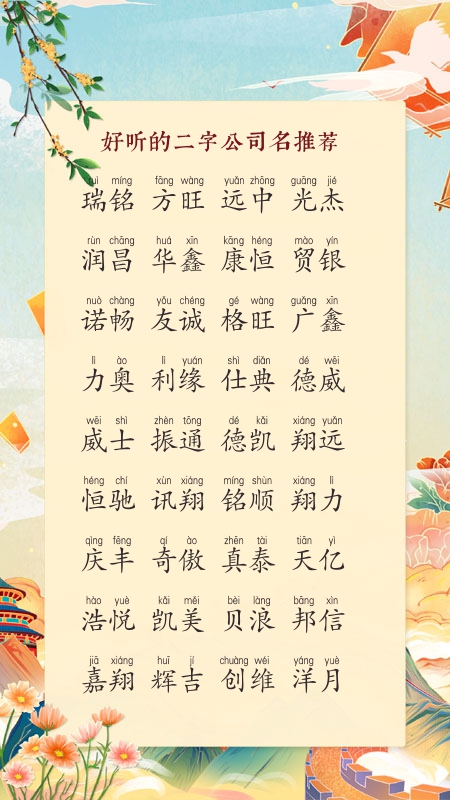 好听的二字公司名推荐
ruì míng fāng wàng yuǎn zhōng guāng jié
瑞铭 方旺 远中 光杰
rùn chāng huá xīn kāng héng mào yín
润昌 华鑫 康恒 贸银
nuò chàng yǒu chéng gé wàng guǎng xīn
诺畅 友诚 格旺 广鑫
lì ào lì yuán shì diǎn dé wēi
力奥 利缘 仕典 德威
wēi shì zhèn tōng dé kǎi xiáng yuǎn
威士 振通 德凯 翔远
héng chí xùn xiáng míng shùn xiáng lì
恒驰 讯翔 铭顺 翔力
qìng fēng qí ào zhēn tài tiān yì
庆丰 奇傲 真泰 天亿
hào yuè kǎi měi bèi làng bāng xìn
浩悦 凯美 贝浪 邦信
jiā xiáng huī jí chuàng wéi yáng yuè
嘉翔 辉吉 创维 洋月